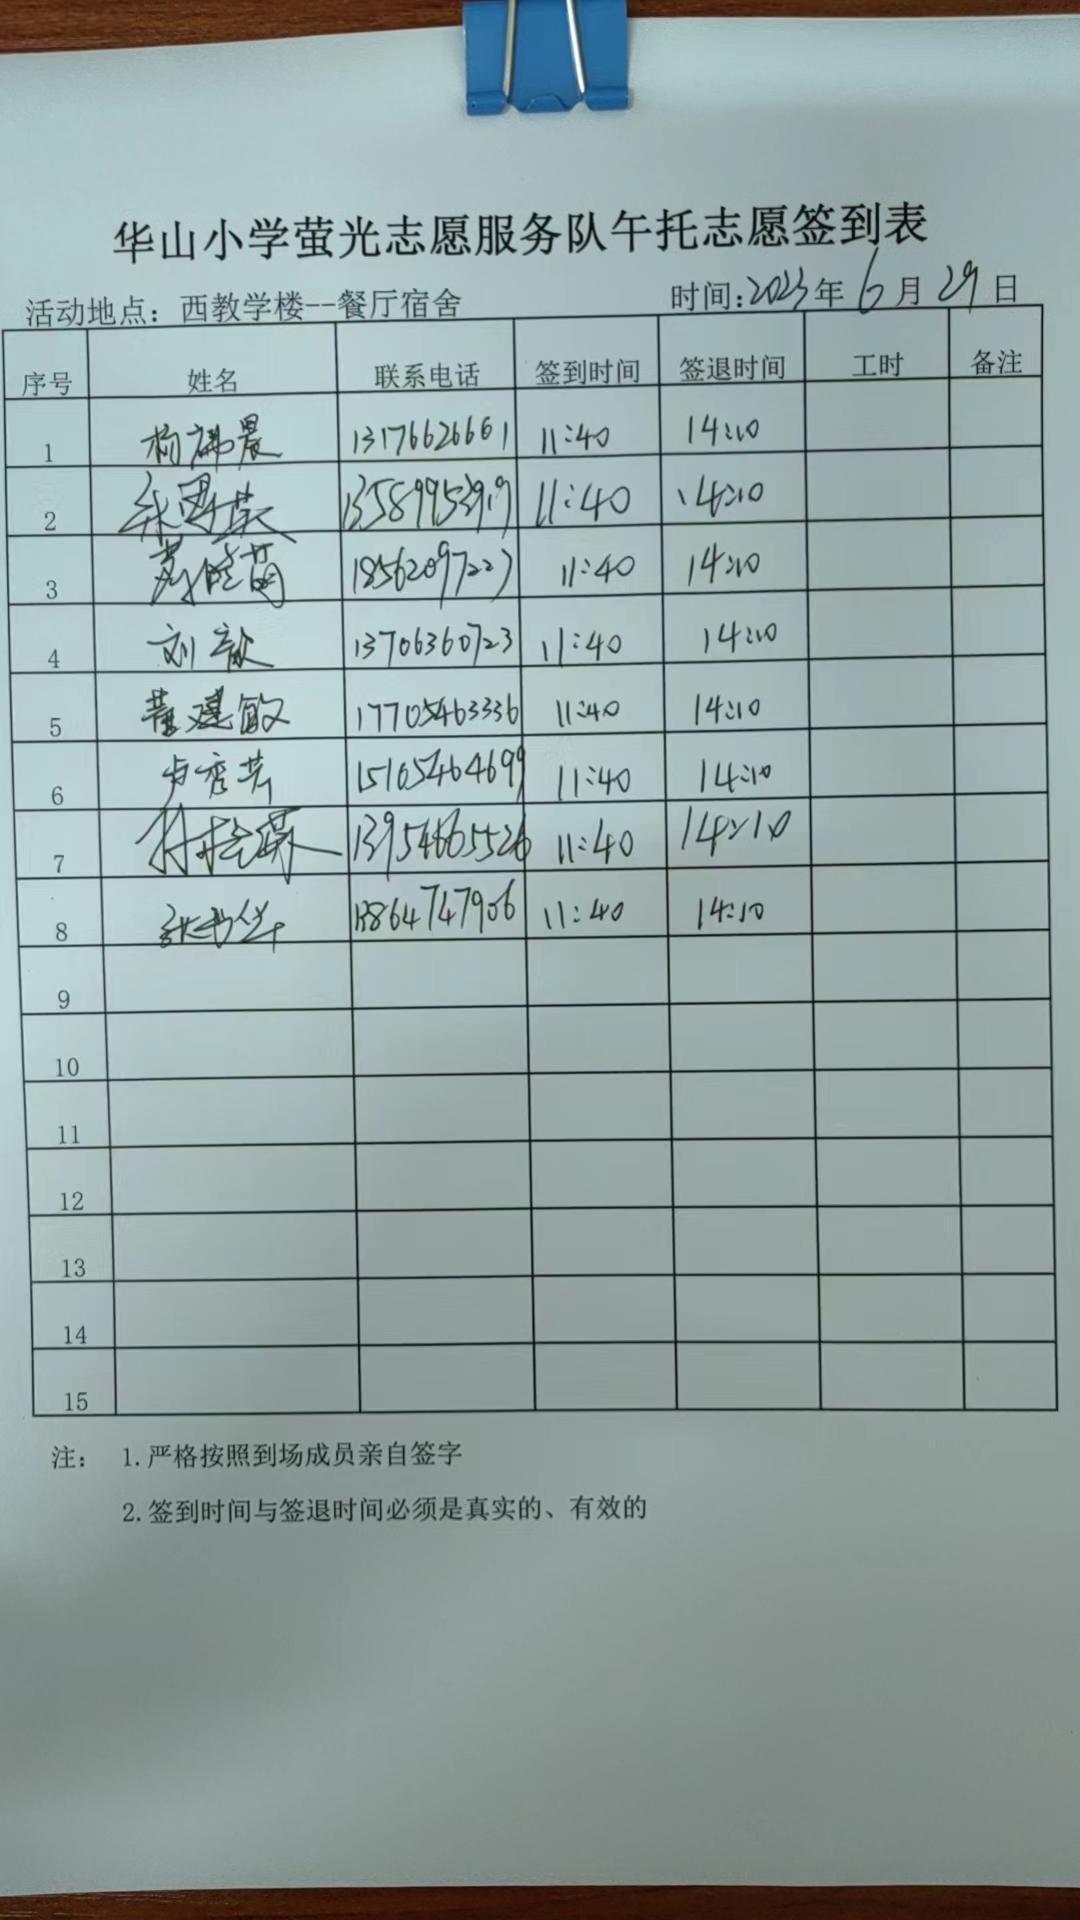 华山小学萤光志愿服务队午托志愿签到表
活动地点：西教学楼--餐厅宿舍 时间：2023年6月29日
序号 姓名 联系电话 签到时间 签退时间 工时 备注
1 杨 晨 13176626661 11:40 14:10
2 英 13589953919 11:40 14:10
3 18562097227 11:40 14:10
4 刘歆 13706360723 11:40 14:10
5 董建敏 17705463336 11:40 14:10
6 卢秀芸 15165464699 11:40 14:10
7 11:40 14:10
8 张书华 11:40 14:10
9
10
11
12
13
14
15
注： 1.严格按照到场成员亲自签字
2.签到时间与签退时间必须是真实的、有效的